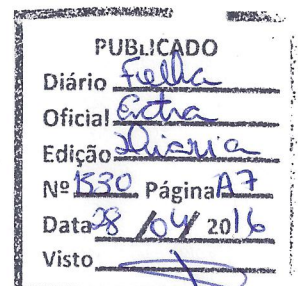 PUBLICADO
Diário Folha
Oficial Extra
Edição Diária
Nº 1530 Página A7
Data 28 / 04 / 2016
Visto